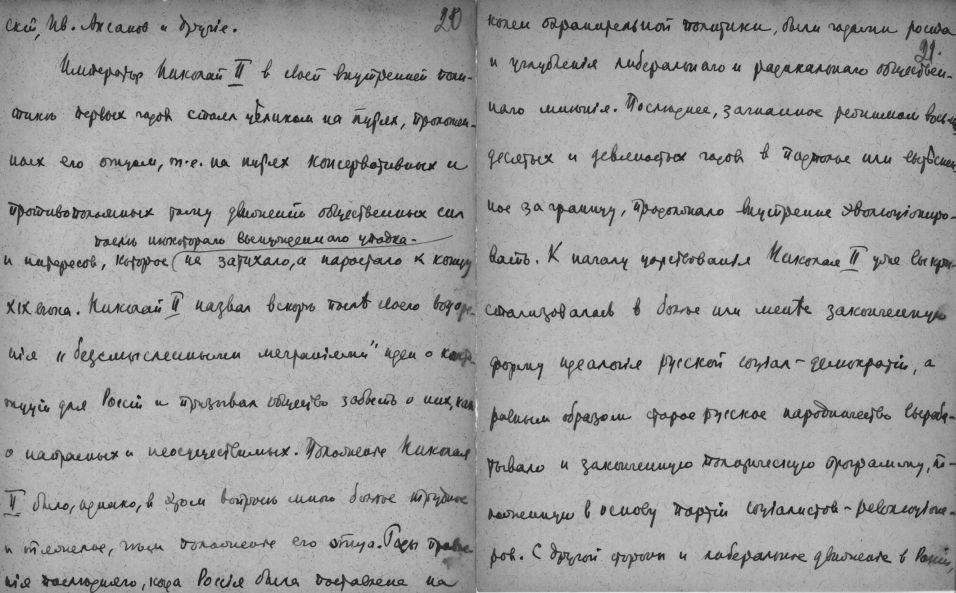 ской, Ив. Аксаков и другіе.
20
Императоръ Николай II в своей внутренней поли-
тикѣ первых годов стоял цѣликом на путях, проложен-
ных его отцом, т.е. на путях консервативных и
противоположных тому движенію общественных сил
послѣ нѣкотораго вынужденнаго упадка
и интересов, которое не затихало, а наростало к концу
XIX вѣка. Николай II назвал вскорѣ послѣ своего водоре-
нія "безсмысленными мечтаніями" идеи о консти-
туціи для Россіи и призывал общество забыть о них, как
о напрасных и неосуществимых. Положеніе Николая
II было, однако, в этом вопросѣ много болѣе трудное
и тяжелое, чѣм положеніе его отца. Годы правле-
нія послѣдняго, когда Россія была поставлена на
колеи охранительной политики, были годами роста
21.
и углубленія либеральнаго и радикальнаго обществен-
наго мнѣнія. Послѣднее, загнанное режимом восьми-
десятых и девяностых годов в подполье или вытѣснен-
ное заграницу, продолжало внутренне эволюціониро-
вать. К началу царствованія Николая II уже выкри-
сталлизовалась в болѣе или менѣе законченную
форму идеологія русской соціал-демократіи, а
равным образом старое русское народничество выраба-
тывало и законченную политическую программу, по-
ложенную в основу партіи соціалистов-революціоне-
ров. С другой стороны и либеральное движеніе в Россіи,